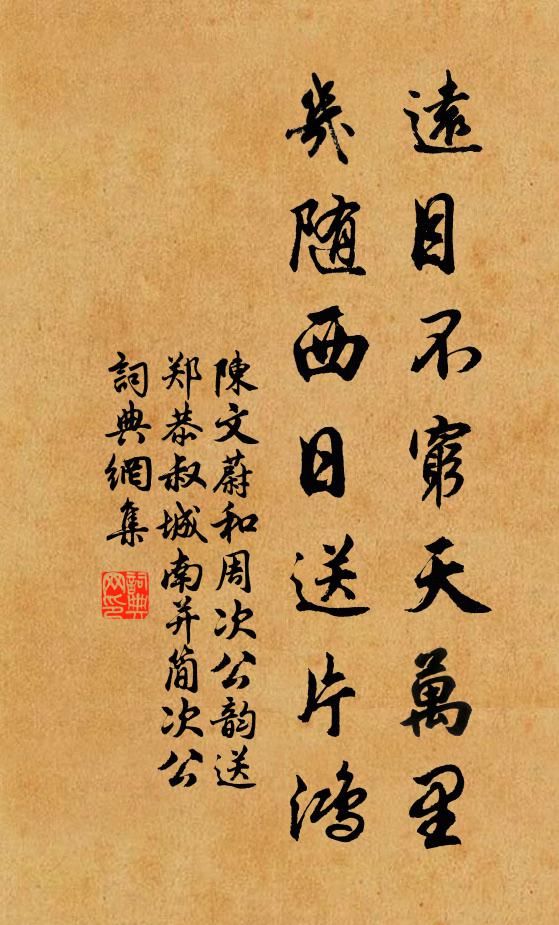 遠目不窮天萬里
幾随西日送片鴻
陳文蔚和周次公韵送
郑恭叔城南并簡次公
詞典網集
詞典
网印